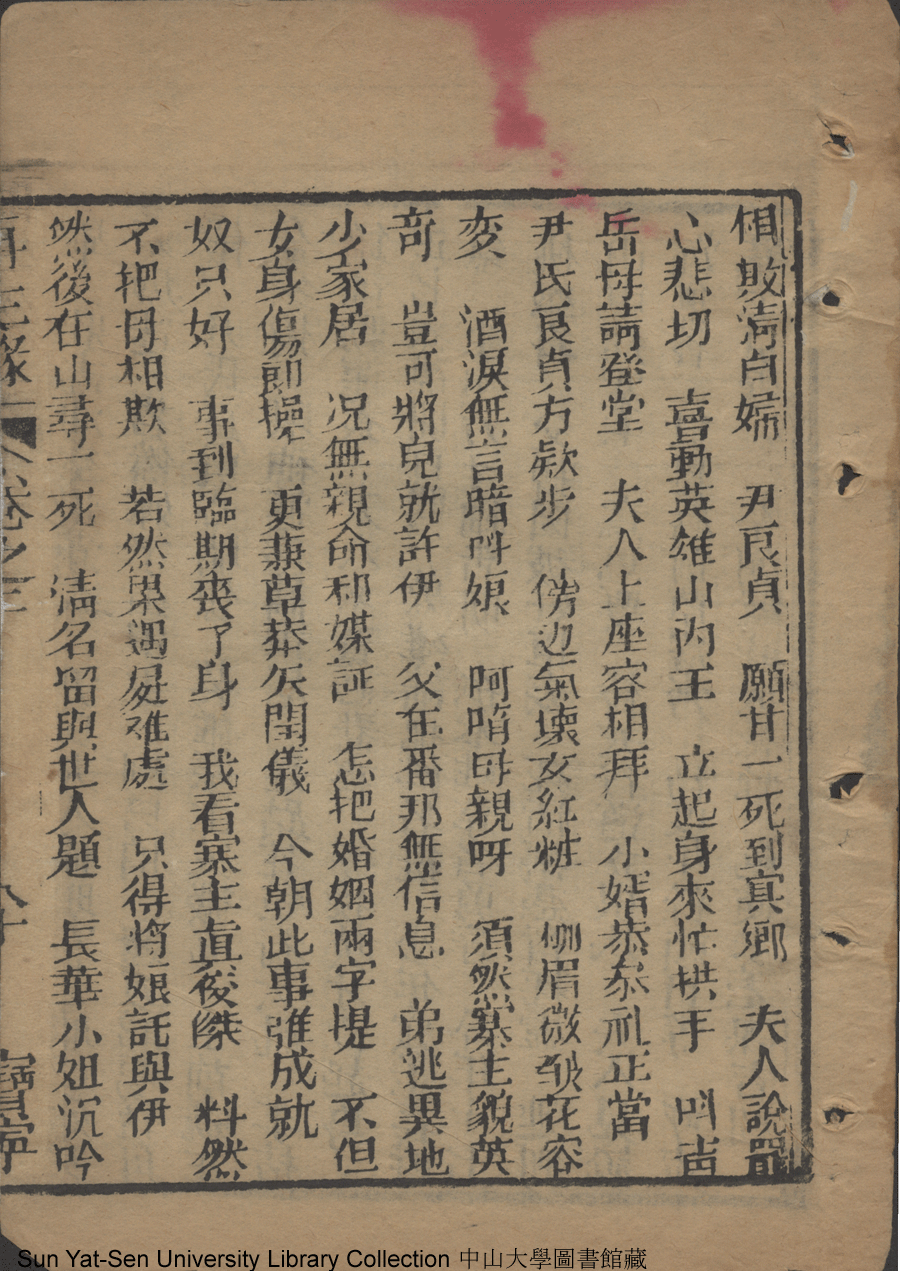 相敗清白婦　尹良貞　願甘一死到㝠鄉　夫人說罷
心悲切　喜動英雄山內王　立起身來忙拱手　叫声
岳母請登堂　夫人上座容相拜　小婿恭恭礼正當
尹氏良貞方欵步　傍边氣壞女紅粧　柳眉微皱花容
変　洒淚無言暗叫娘　阿唷母親呀　須然寨主貌英
奇　豈可將兒就許伊　父在番邦無信息　弟逃異地
少家居　况無親命和媒証　怎把婚姻兩字提　不但
女身傷即操　更兼草莽欠閨儀　今朝此事誰成就
奴只好　事到臨期喪了身　我看寨主真俊傑　料然
不把母相欺　若然果遇疑难處　只得将娘託與伊
然後在山尋一死　清名留與世人題　長華小姐沉吟
再生緣　卷之三　八十　寶寧
Sun Yat-Sen University Library Collection 中山大學圖書館藏